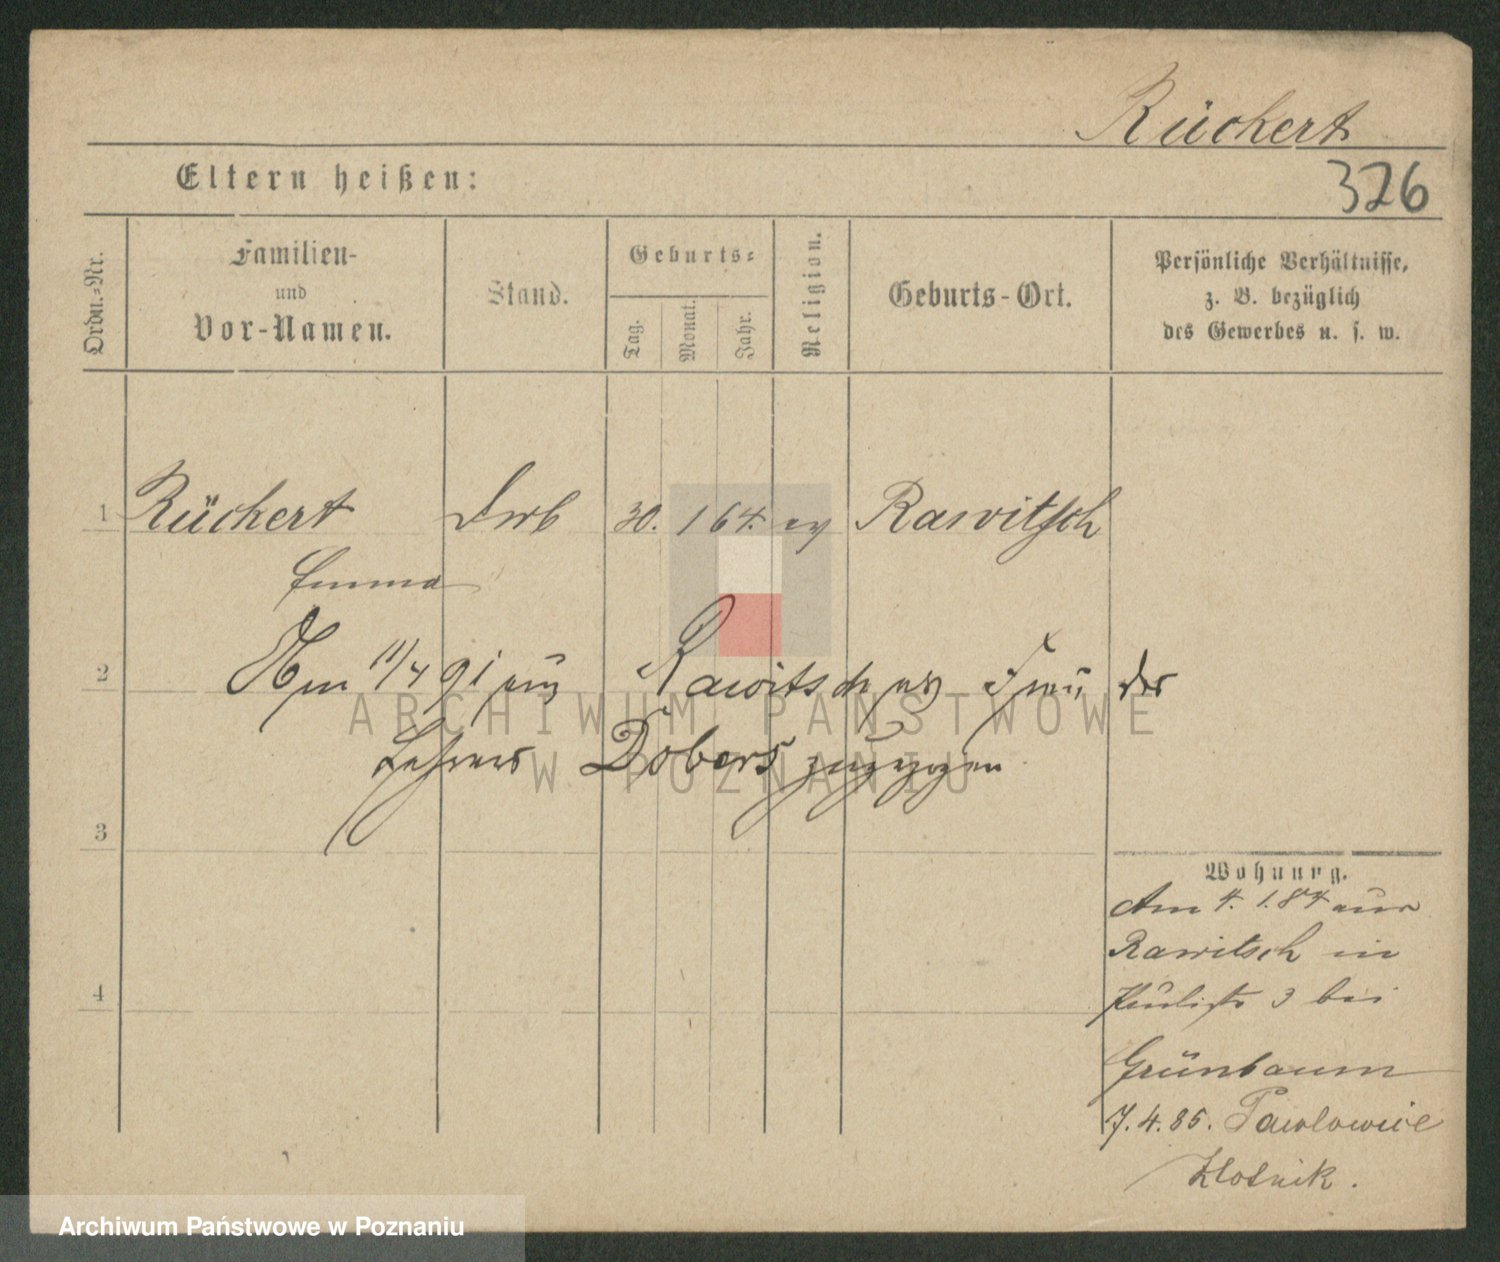 Rückert
Eltern heißen:
326
Ordn.-Nr.
Familien-
und
Vor-Namen.
Stand.
Geburts-
Tag.
Monat.
Jahr.
Religion.
Geburts-Ort.
Persönliche Verhältnisse,
z. B. bezüglich
des Gewerbes u. s. w.
1 Rückert 30. 1 64. ev Rawitsch
Emma
2 Am 11/4 91 aus Rawitsch als Frau des
Lehrers Dobers zugezogen
3
4
Wohnung.
Am 4. 1. 84 aus
Rawitsch in
3 bei
Grünbaum
7. 4. 85. Pawlowice
Zlotnik.
ARCHIWUM PAŃSTWOWE
W POZNANIU
Archiwum Państwowe w Poznaniu